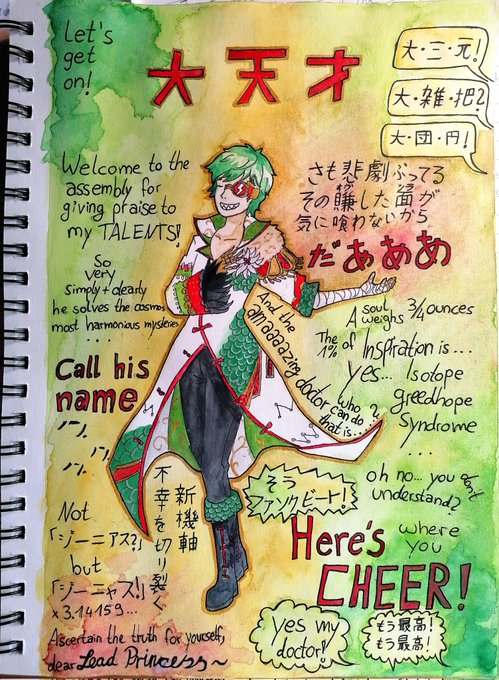 Let's
get
on!
大天才
大・三・元!
大・雑・把?
大・団・円!
Welcome to the
assembly for
giving praise to
my TALENTS!
さも悲劇ぶってる
その賺した面が
気に喰わないから
だあああ
So
very
simply + clearly
he solves the cosmos
most harmonious mysteries
...
And the
amaaaazing
doctor who
can do
that is...?
A soul
weighs 3/4 ounces
The
1% of Inspiration is...
yes... Isotope
greedhope
Syndrome
...
Call his
name
ハハ
ハハ
新機軸
不幸を切り裂く
そう
ファンクビート!
oh no... you don't
understand?
Not
「ジーニアス?」
but
「ジーニャス!」
x 3.14159...
Here's where
you
CHEER!
Ascertain the truth for yourself,
dear Lead Princess~
yes my
doctor!
もう最高!
もう最高!